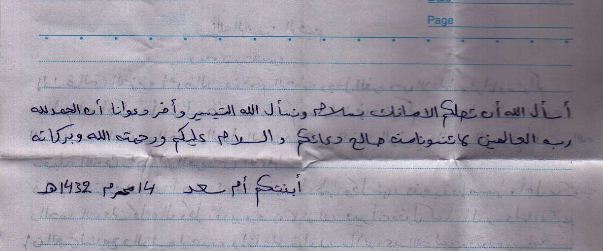 Page
أسأل الله أن تصلكم الامانات بسلام ونسأل الله التيسير وأخر دعوانا أن الحمدلله
رب العالمين لا تنسونا من صالح دعائكم والسلام عليكم ورحمته الله وبركاته
أبنتكم أم سعد 14 محرم 1432هـ